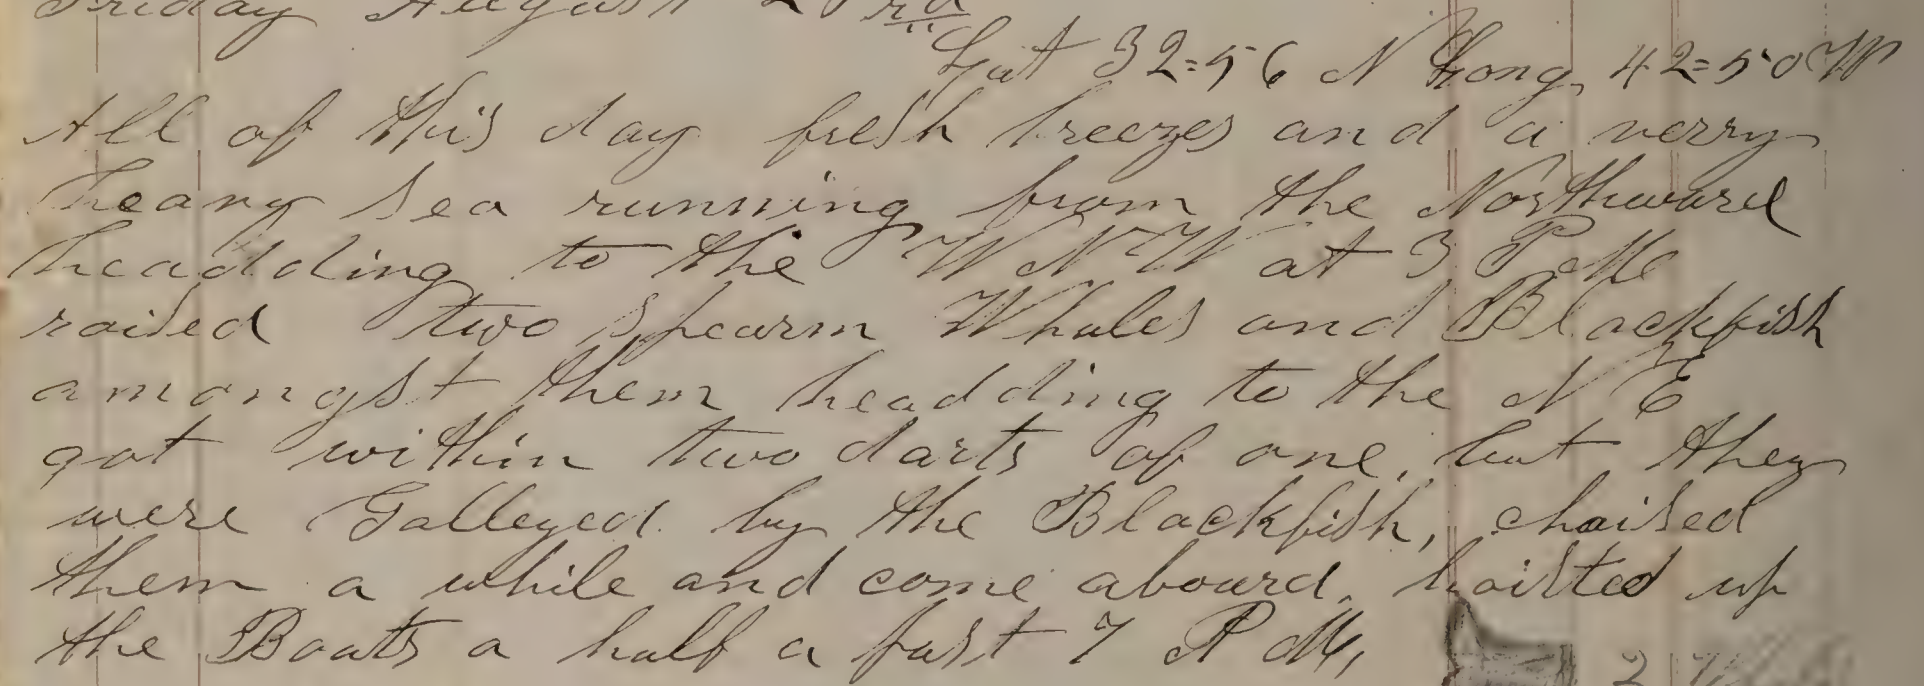 Friday August
Lat 32=56 N Long, 42=50 W
All of this day fresh breezes and a verry
heavy sea running from the Northward
headding to the W N W at 3 P M
raised two spearm Whales and Blackfish
amongst them headding to the N E
got within two darts of one, but they
were Galleyed by the Blackfish, chaised
them a while and come abourd, hoisted up
the Boats a half a past 7 P M,